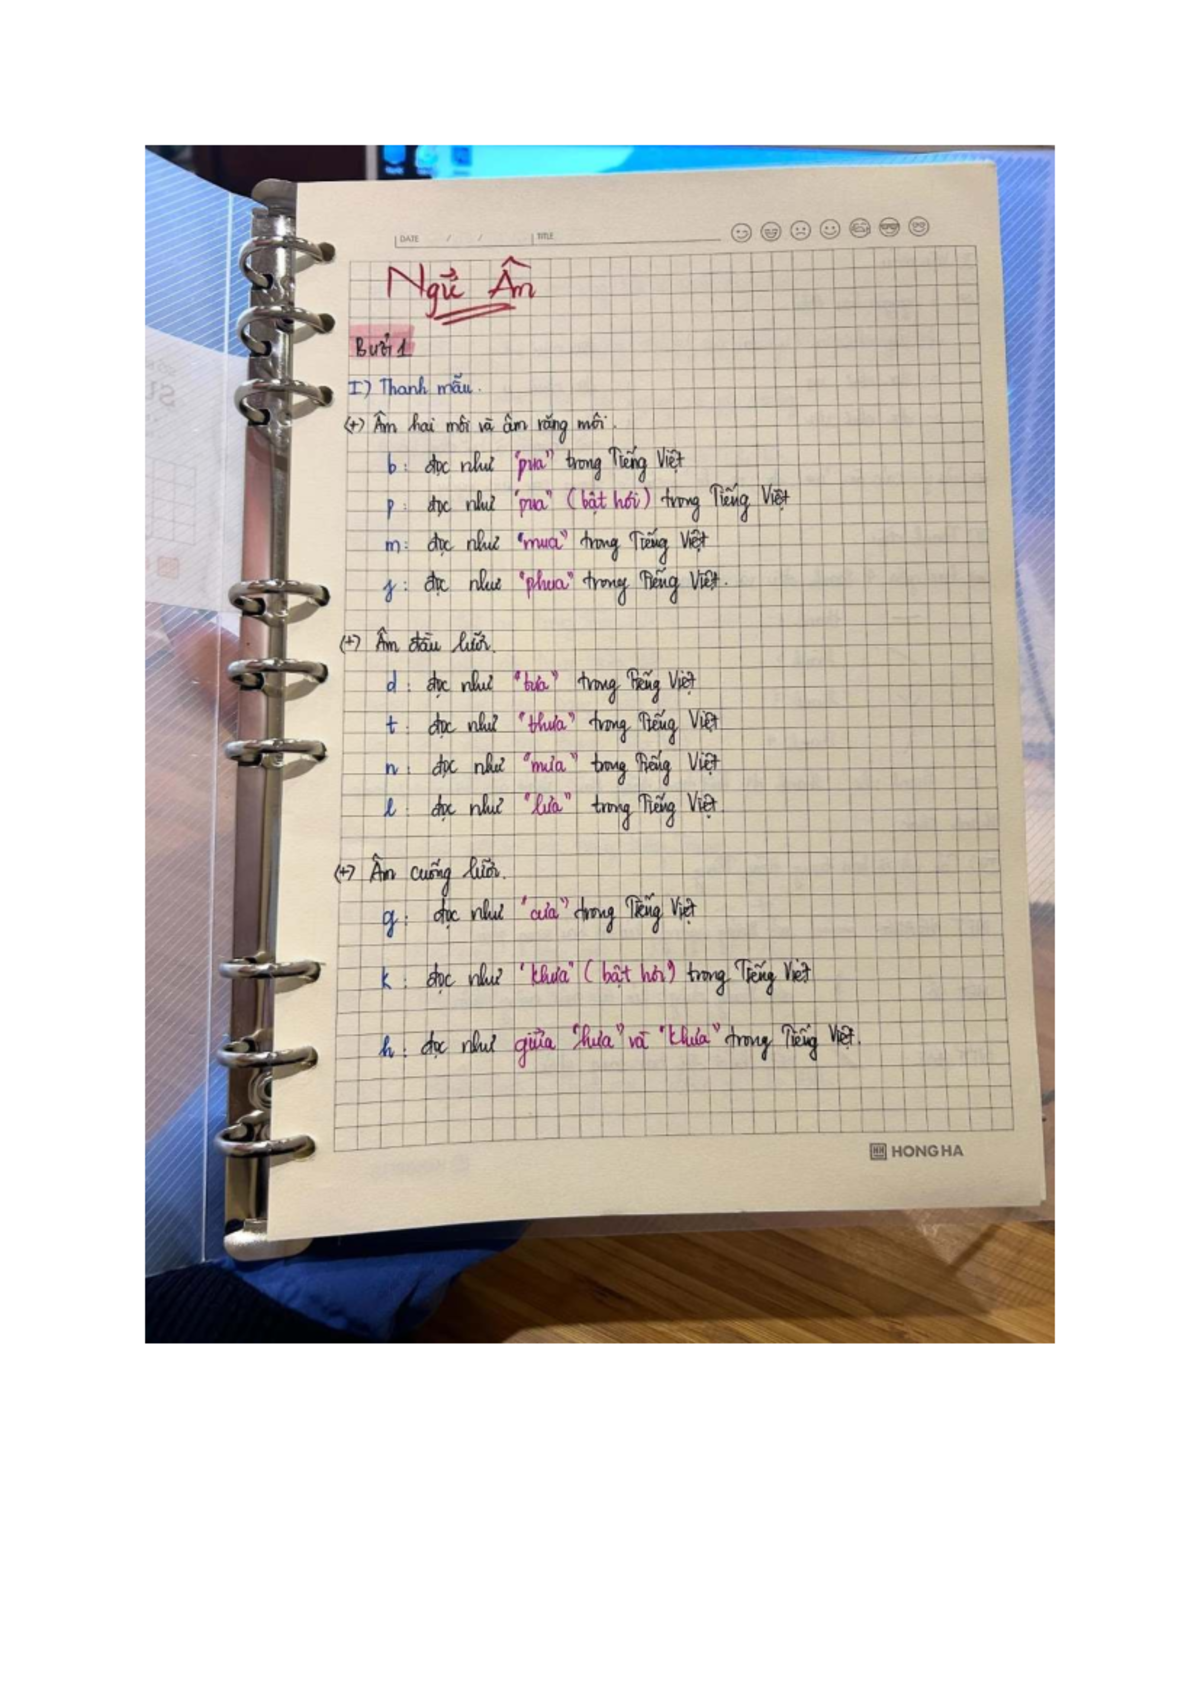 DATE / / TITLE
Ngữ Âm
Buổi 1
I) Thanh mẫu.
(+) Âm hai môi và âm răng môi.
b: đọc như "pua" trong Tiếng Việt
p: đọc như "pua" (bật hơi) trong Tiếng Việt
m: đọc như "mua" trong Tiếng Việt
f: đọc như "phua" trong Tiếng Việt.
(+) Âm đầu lưỡi.
d: đọc như "tưa" trong Tiếng Việt
t: đọc như "thưa" trong Tiếng Việt
n: đọc như "nưa" trong Tiếng Việt
l: đọc như "lưa" trong Tiếng Việt
(+) Âm cuống lưỡi.
g: đọc như "cưa" trong Tiếng Việt
k: đọc như "khưa" (bật hơi) trong Tiếng Việt
h: đọc như giữa "hưa" và "khưa" trong Tiếng Việt.
HONG HA